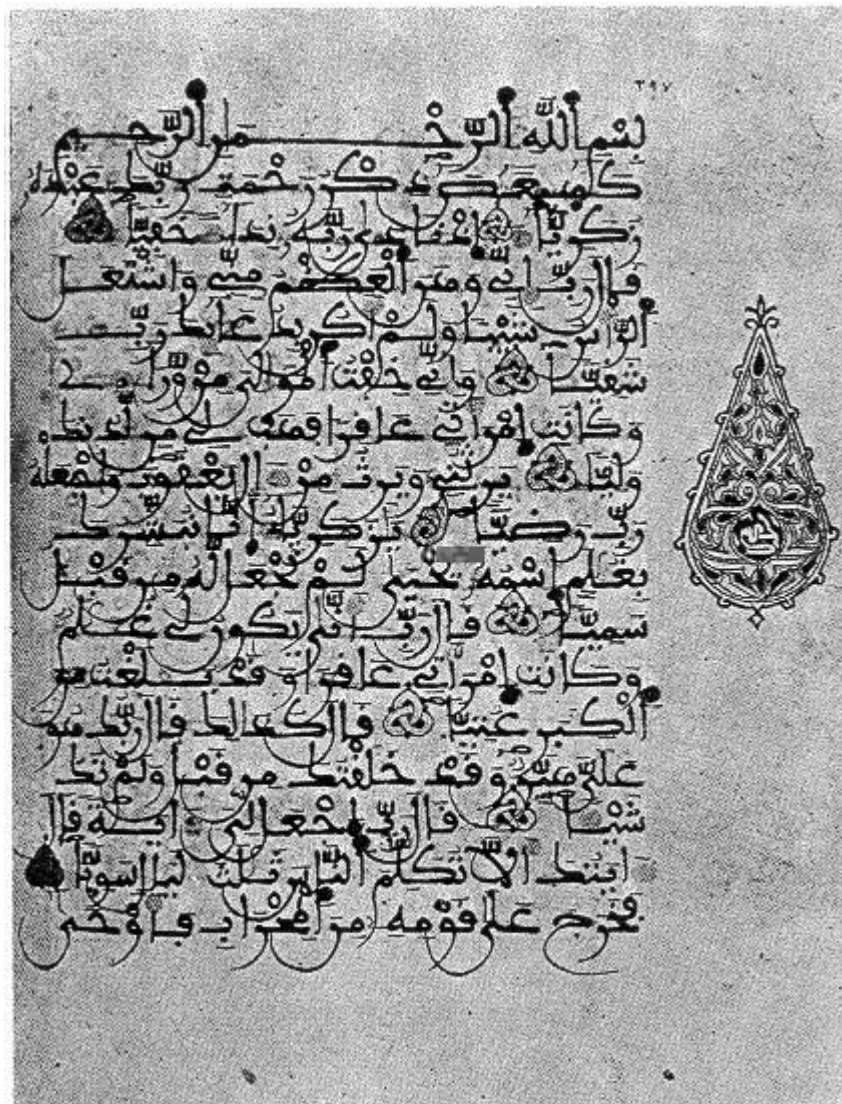 ٣٩٧
بسم الله الرحمن الرحيم
كهيعص ذكر رحمت ربك عبده
زكريا إذ نادى ربه نداء خفيا
قال رب إني وهن العظم مني واشتعل
الراس شيبا ولم أكن بدعائك رب
شقيا وإني خفت الموالي من وراءي
وكانت امرأتي عاقرا فهب لي من لدنك
وليا يرثني ويرث من ال يعقوب واجعله
رب رضيا يزكريا إنا نبشرك
بغلم اسمه يحيى لم نجعل له من قبل
سميا قال رب أنى يكون لي غلم
وكانت امرأتي عاقرا وقد بلغت من
الكبر عتيا قال كذلك قال ربك هو
علي هين وقد خلقتك من قبل ولم تك
شيا قال رب اجعل لي اية قال
ايتك الا تكلم الناس ثلث ليال سويا
فخرج على قومه من المحراب فاوحى